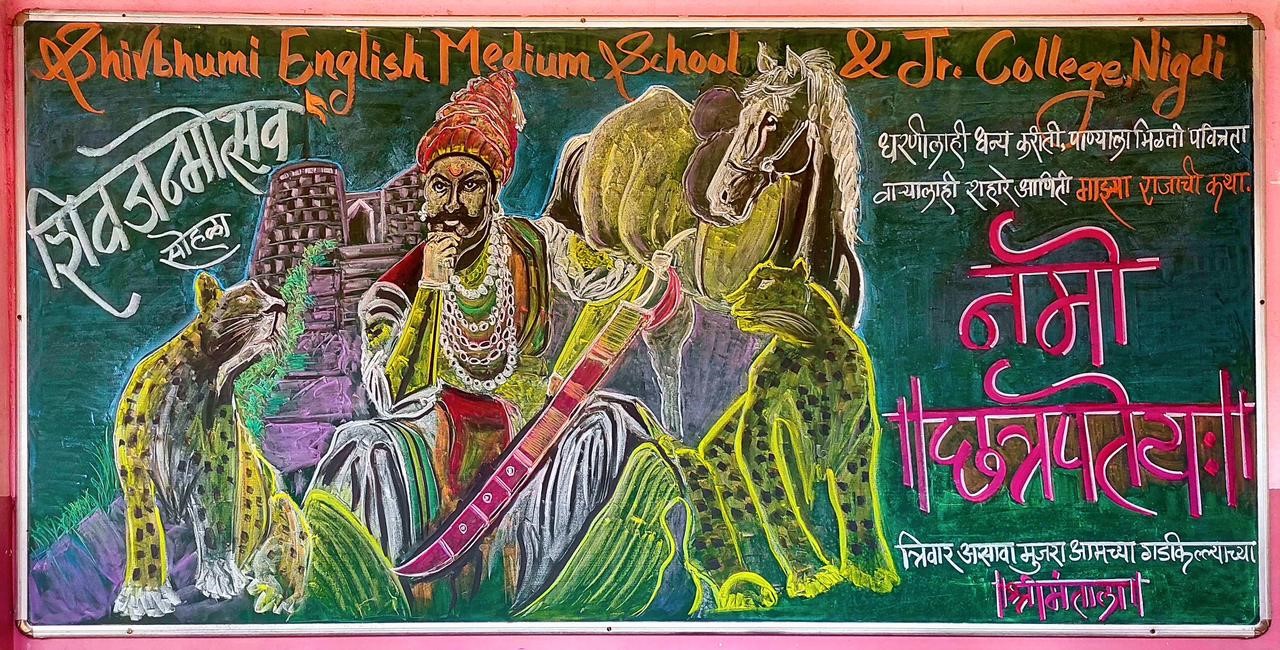 Shivbhumi English Medium School & Jr. College, Nigdi
शिवजन्मोत्सव
सोहळा
धरणीलाही धन्य करीती, पाण्याला मिळती पवित्रता
वाऱ्यालाही शहारे आणिती माझ्या राजाची कथा.
नमो
॥छत्रपतेय:॥
त्रिवार असावा मुजरा आमच्या गडकिल्ल्याच्या
॥श्रीमंताला॥